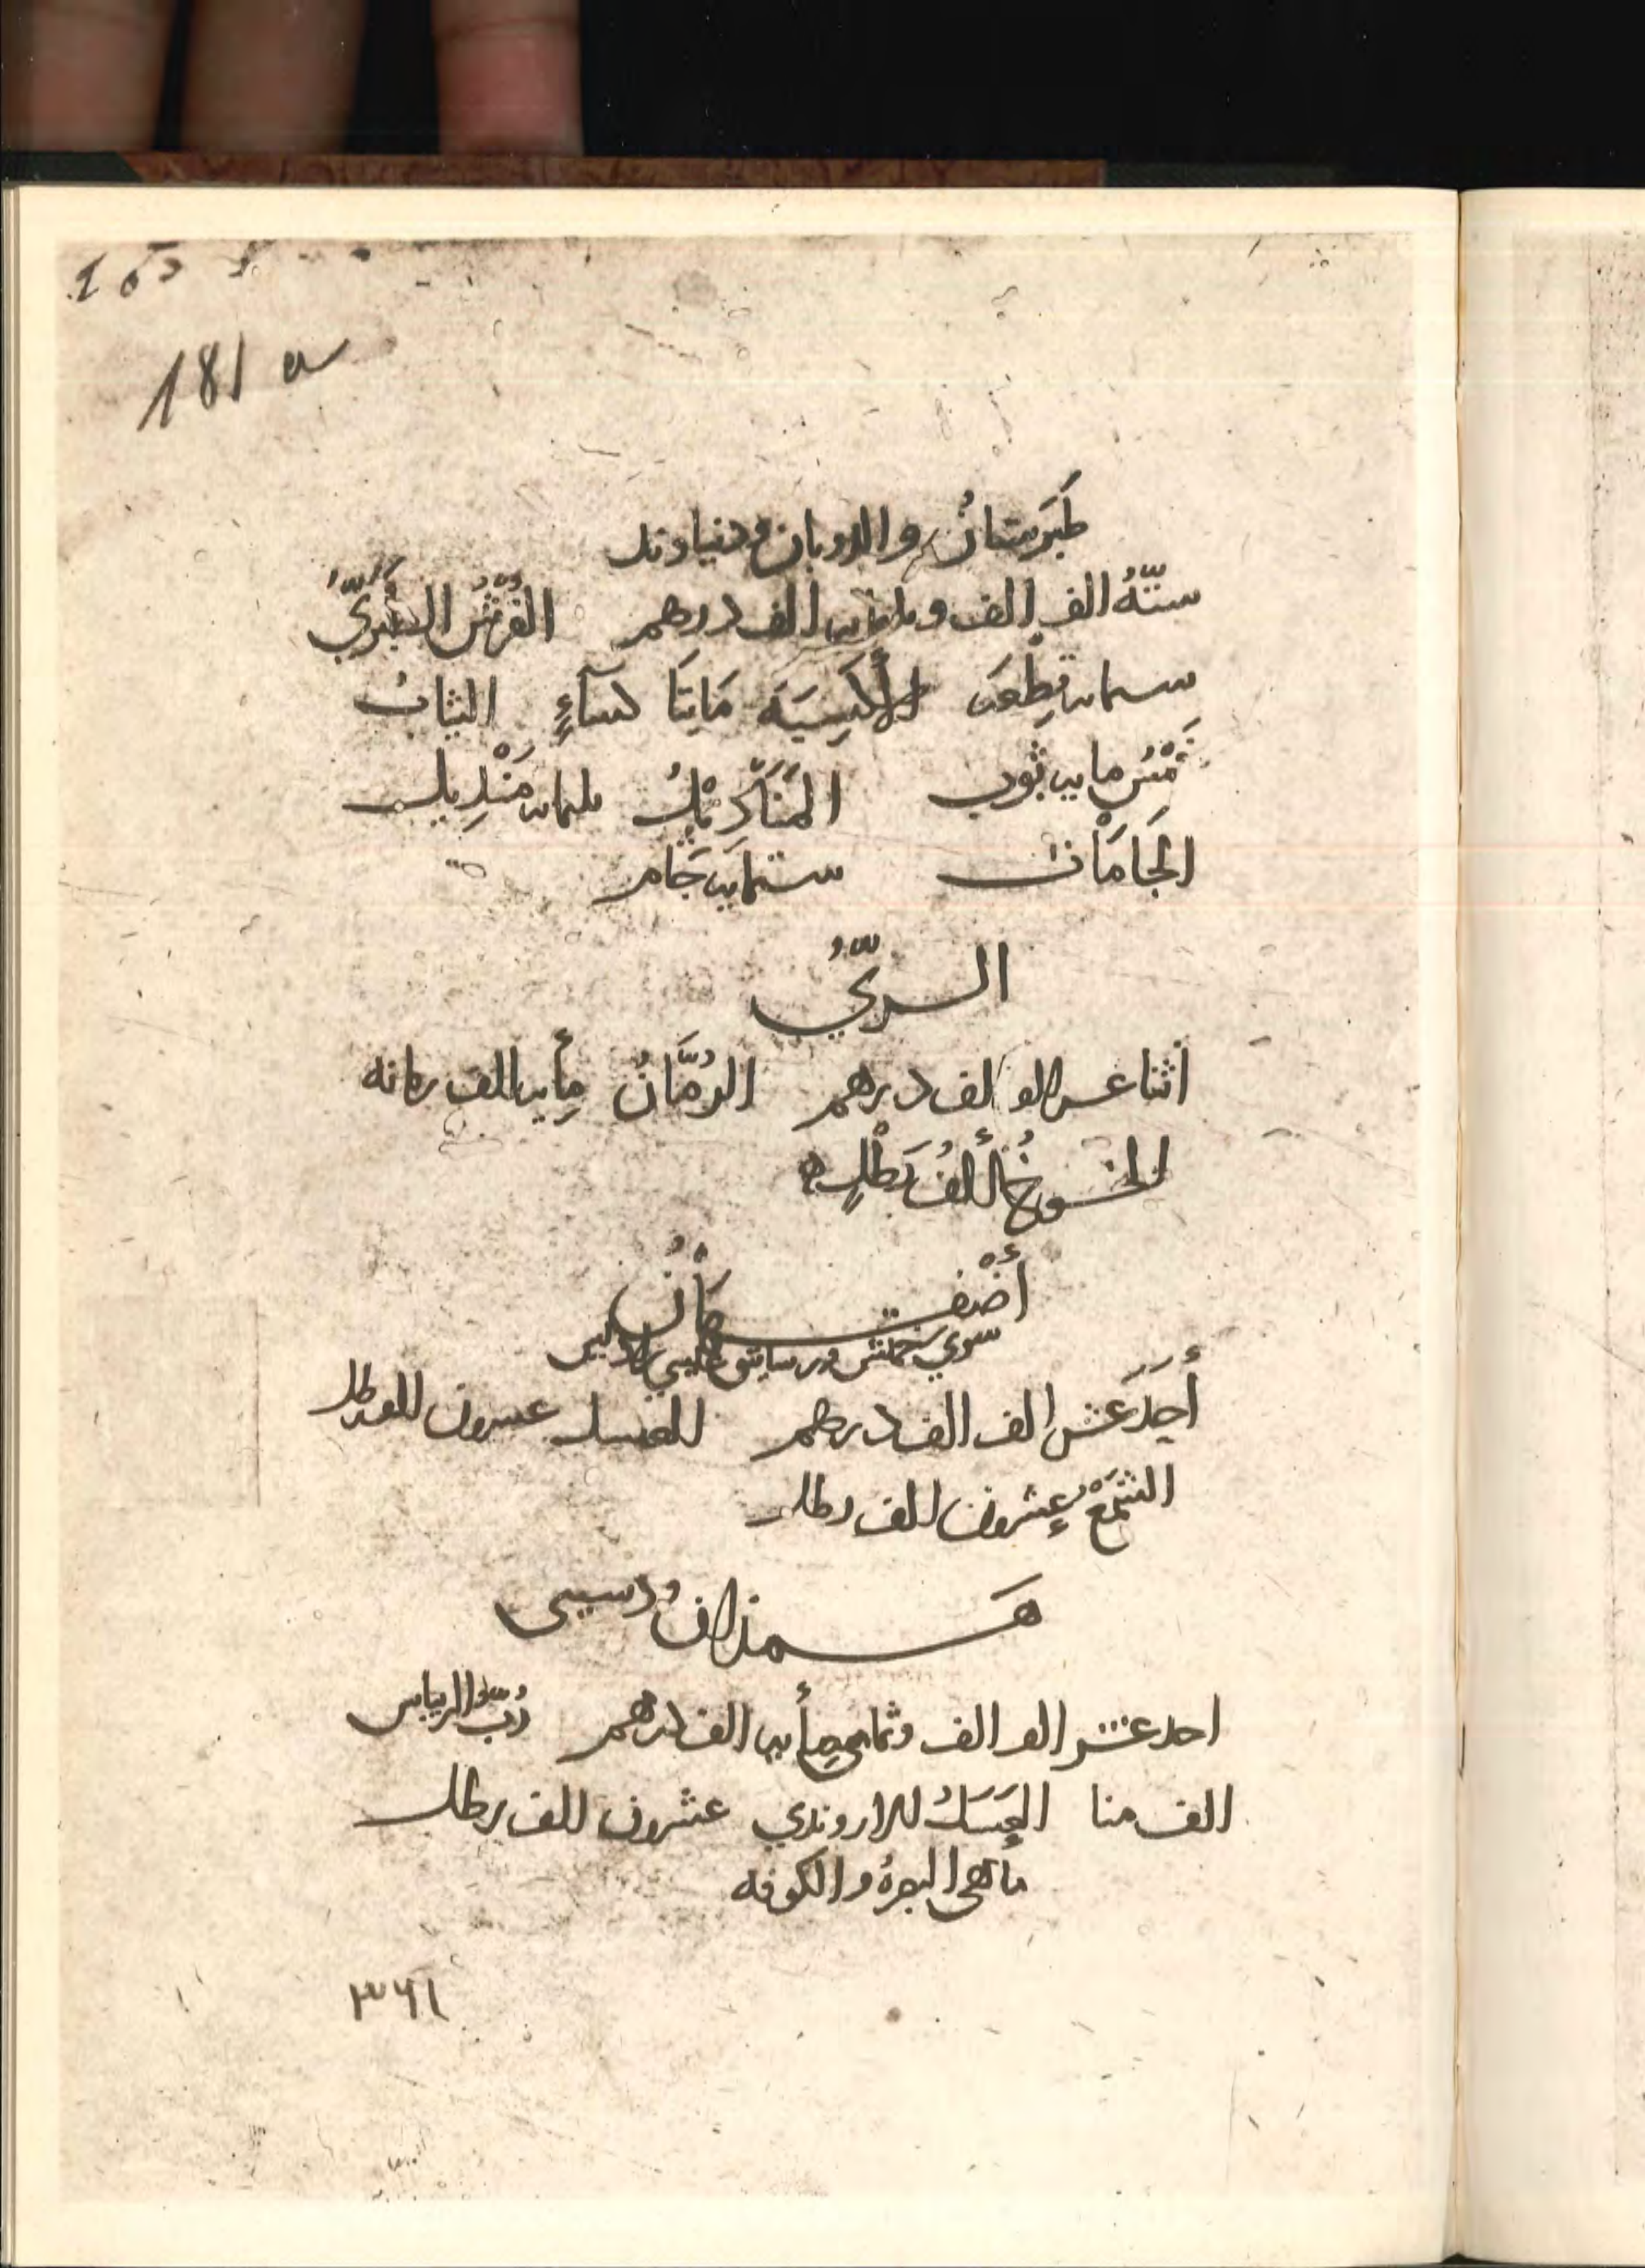 181 a
طَبَرِستانُ والرويان ودنباوند
ستّةُ الف الف وثلثمايه الف درهم الفُرُشُ الطَبَرِيُّ
ستمايه قِطْعه الأكسِيَه مَايَتَا كسآءٍ الثياب
خَمْسُ مايه ثوب المَنَادِيْلُ ثلثمايه مَنْدِيل
الجَامَات ستمايه جَام
الـريُّ
اثنا عشر الف الف درهم الرُمَّانُ مِأيه الف رمانه
الخـوخُ أَلفُ رَطْلٍ
أصْفـهانُ
سوي
أَحَدَ عَشَر الف الف درهم العسل عشرون الف رطل
الشَمْعُ عِشرون الف رطل
هَـمذان ودستبى
احد عشر الف الف وثماني مأيه الف درهم رُبّ الريباس
الف منا العَسَلُ الاروندي عشرون الف رطل
ماهى البصرهُ والكوفه
٣٦١